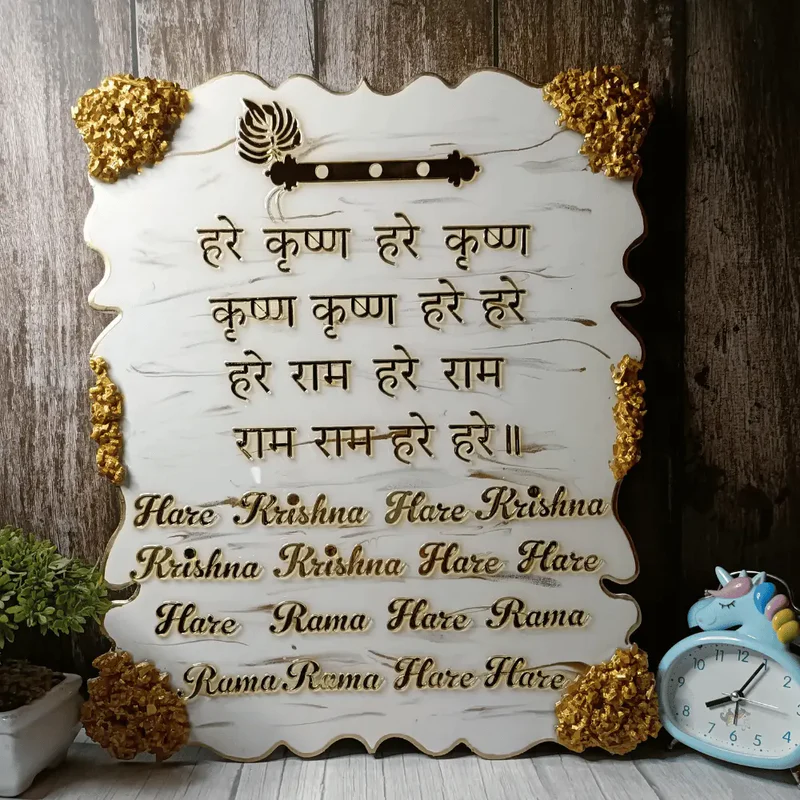 हरे कृष्ण हरे कृष्ण
कृष्ण कृष्ण हरे हरे
हरे राम हरे राम
राम राम हरे हरे॥
Hare Krishna Hare Krishna
Krishna Krishna Hare Hare
Hare Rama Hare Rama
Rama Rama Hare Hare
10 11 12 1
9 2
8
7 6 5 4